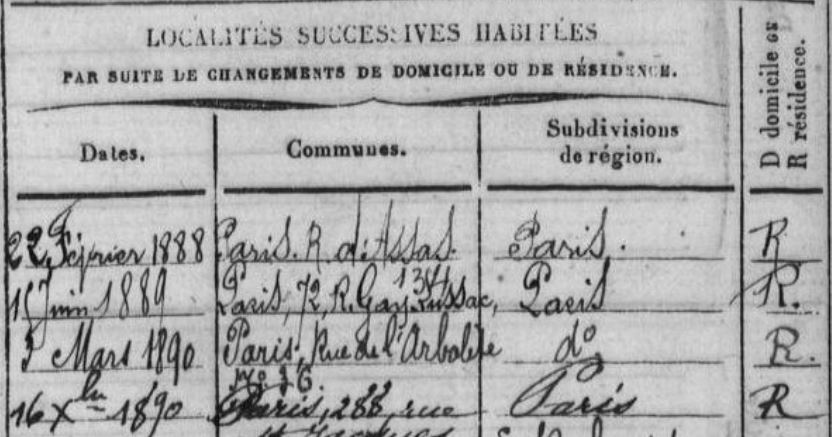 LOCALITÉS SUCCESSIVES HABITÉES
PAR SUITE DE CHANGEMENTS DE DOMICILE OU DE RÉSIDENCE.
Dates.
Communes.
Subdivisions
de région.
D domicile ou
R résidence.
22 Février 1888 Paris. R. d'Assas. Paris. R
134
Juin 1889 Paris, 72, R. Gay Lussac, Paris R.
Mars 1890 Paris, Rue de l'Arbalète do R.
No 26.
16 Xbre 1890 Paris, 288, rue Paris R
St Jacques